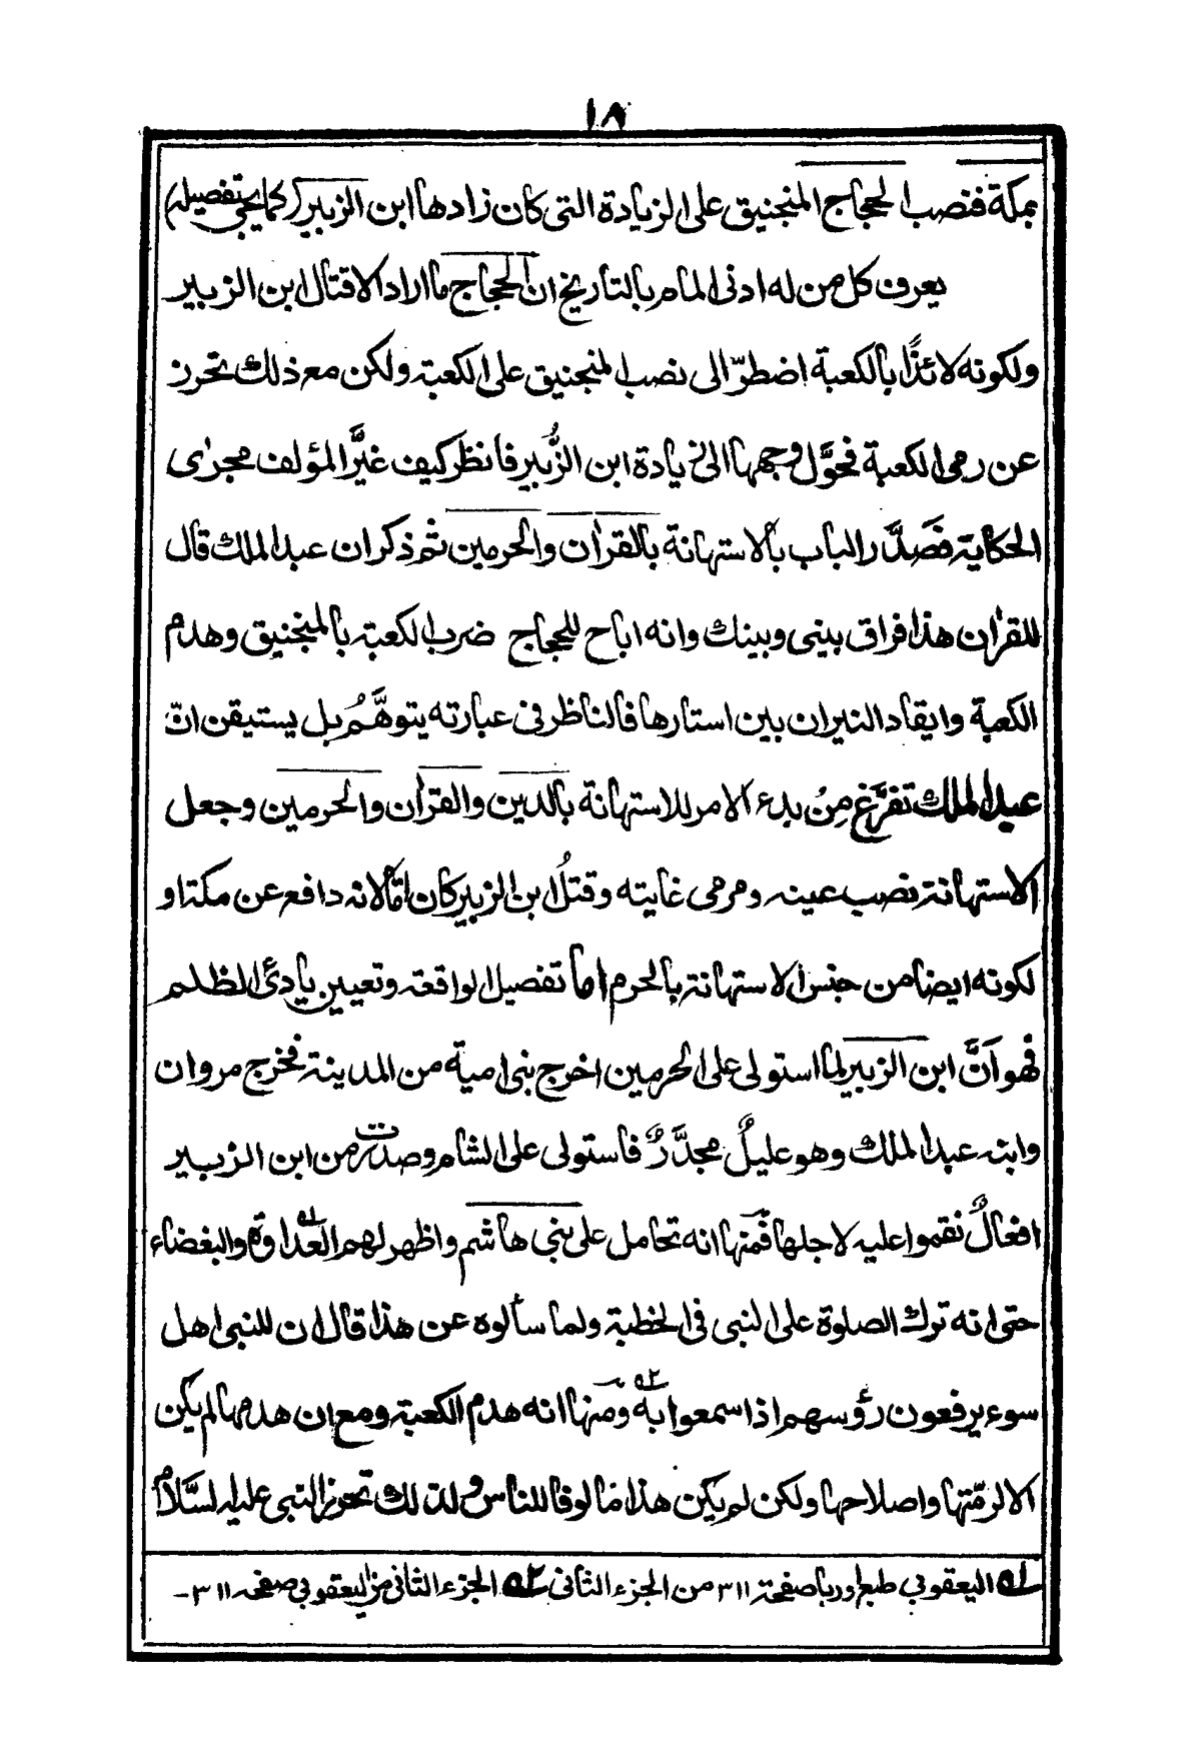 ١٨
بمكة فنصب الحجاج المنجنيق على الزيادة التى كان زادها ابن الزبير (كما يجئ تفصيله)
يعرف كل من له ادنى المام بالتاريخ ان الحجاج ما اراد الا قتال ابن الزبير
ولكونه لائذًا بالكعبة اضطرّ الى نصب المنجنيق على الكعبة ولكن مع ذلك تحرز
عن رمى الكعبة فحوَّل وجهها الى زيادة ابن الزُّبير فانظر كيف غيَّر المؤلف مجرٰى
الحكاية فصَدَّر الباب بالاستهانة بالقراٰن والحرمين ثم ذكر ان عبد الملك قال
للقراٰن هذا فراق بينى وبينك وانه اباح للحجاج ضرب الكعبة بالمنجنيق وهدم
الكعبة وايقاد النيران بين استارها فالناظر فى عبارته يتوهَّمُ بل يستيقن انّ
عبد الملك تفرَّغ مِنْ بدء الامر للاستهانة بالدين والقراٰن والحرمين وجعل
الاستهانة نصب عينه ومرمى غايته وقتلُ ابن الزبير كان امّا لانه دافع عن مكة او
لكونه ايضا من جنس الاستهانة بالحرم اما تفصيل الواقعة وتعيين بادئ الظلم
فهو اَنَّ ابن الزبير لما استولى على الحرمين اخرج بنى امية من المدينة فخرج مروان
وابنه عبد الملك وهو عليلٌ مجدَّرٌ فاستولى على الشام وصدرت من ابن الزبير
افعالٌ نقموا عليه لاجلها فمنها انه تحامل على بنى هاشم واظهر لهم العداوة والبغضاء ١ه
حتى انه ترك الصلوة على النبى فى الخطبة ولما سألوه عن هذا قال ان للنبى اهل
سوء يرفعون رؤسهم اذا سمعوا به ٢ه ومنها انه هدم الكعبة ومع ان هدمها لم يكن
الا لرمّتها واصلاحها ولكن لم يكن هذا مالوفا للناس ولذلك تحرز النبى عليه السَّلام
١ه اليعقوبي طبع اوربا صفحة ٣١١ من الجزء الثانى ٢ه الجزء الثانى من اليعقوبي صفحة ٣١١ -